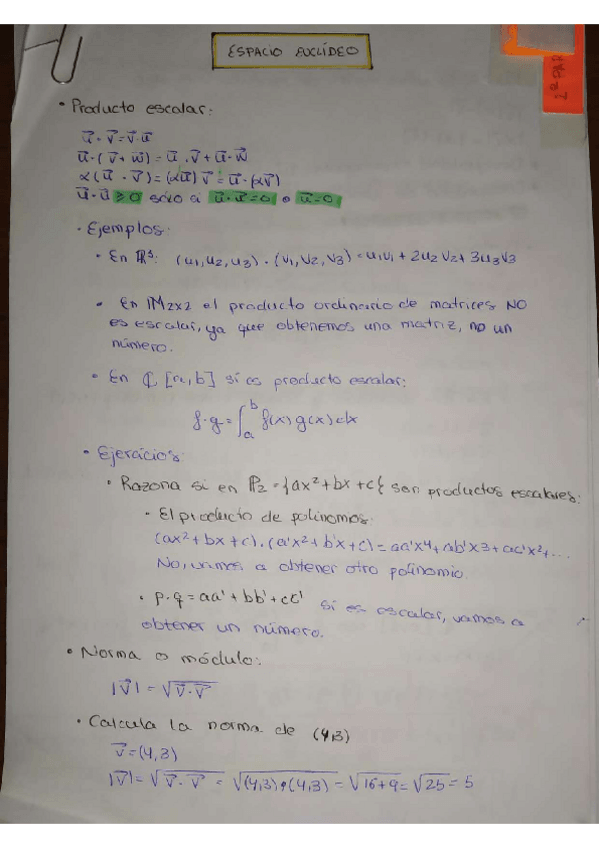 ESPACIO EUCLÍDEO
2ª PAR
• Producto escalar:
u⃗ · v⃗ = v⃗ · u⃗
u⃗ · (v⃗ + w⃗) = u⃗ · v⃗ + u⃗ · w⃗
α(u⃗ · v⃗) = (αu⃗) v⃗ = u⃗ · (αv⃗)
u⃗ · u⃗ ≥ 0 sólo si u⃗ · u⃗ = 0 o u⃗ = 0
• Ejemplos:
• En ℝ³: (u1, u2, u3) · (v1, v2, v3) = u1v1 + 2u2v2 + 3u3v3
• En IM2x2 el producto ordinario de matrices NO
es escalar, ya que obtenemos una matriz, no un
número.
• En ℂ [a, b] sí es producto escalar:
f · g = ∫_a^b f(x) g(x) dx
• Ejercicios:
• Razona si en ℙ2 = {ax² + bx + c} son productos escalares:
• El producto de polinomos:
(ax² + bx + c) · (a'x² + b'x + c') = aa'x4 + ab'x3 + ac'x² + ...
No, vamos a obtener otro polinomio
• p · q = aa' + bb' + cc' sí es escalar, vamos a
obtener un número.
• Norma o módulo:
|v⃗| = √(v⃗ · v⃗)
• Calcula la norma de (4,3)
v⃗ = (4,3)
|v⃗| = √(v⃗ · v⃗) = √((4,3) · (4,3)) = √(16+9) = √25 = 5